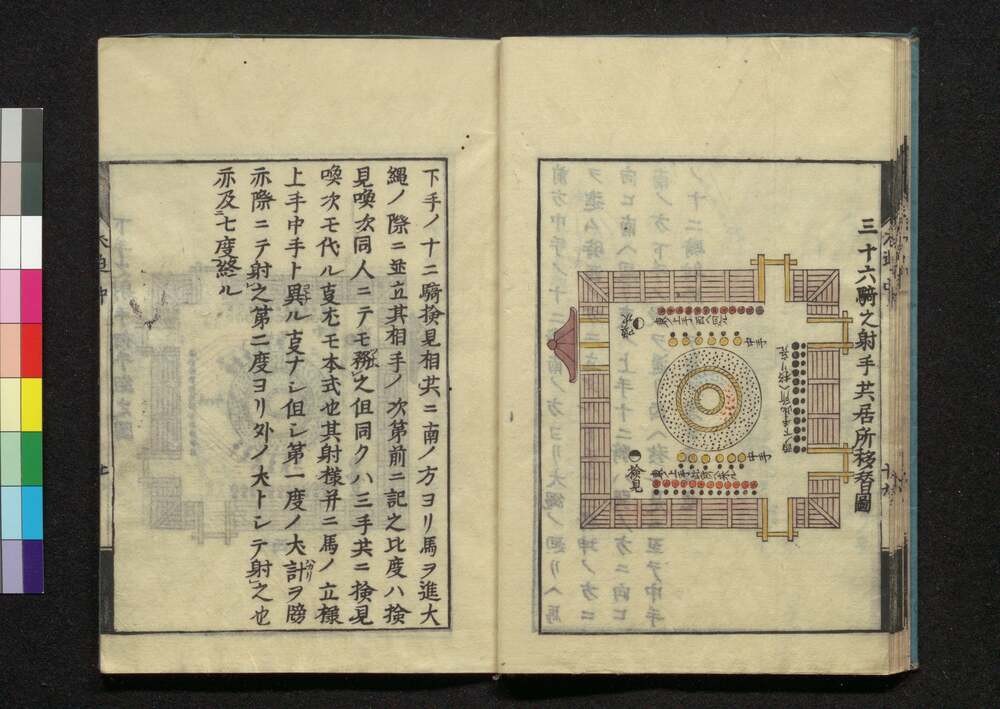 三十六騎之射手共居所移替圖
喚次
中手
中手
檢見
下手ノ十二騎検見相共ニ南ノ方ヨリ馬ヲ進大
縄ノ際ニ並立其相手ノ次第前ニ記之比度ハ検
見喚次同人ニテモ務之但同クハ三手共ニ検見
喚次モ代ル叓尤モ本式也其射様并ニ馬ノ立様
上手中手ト異ル叓ナシ但シ第一度ノ犬計ヲ
亦際ニテ射之第二度ヨリ外ノ犬トシテ射之也
亦及七度終ル